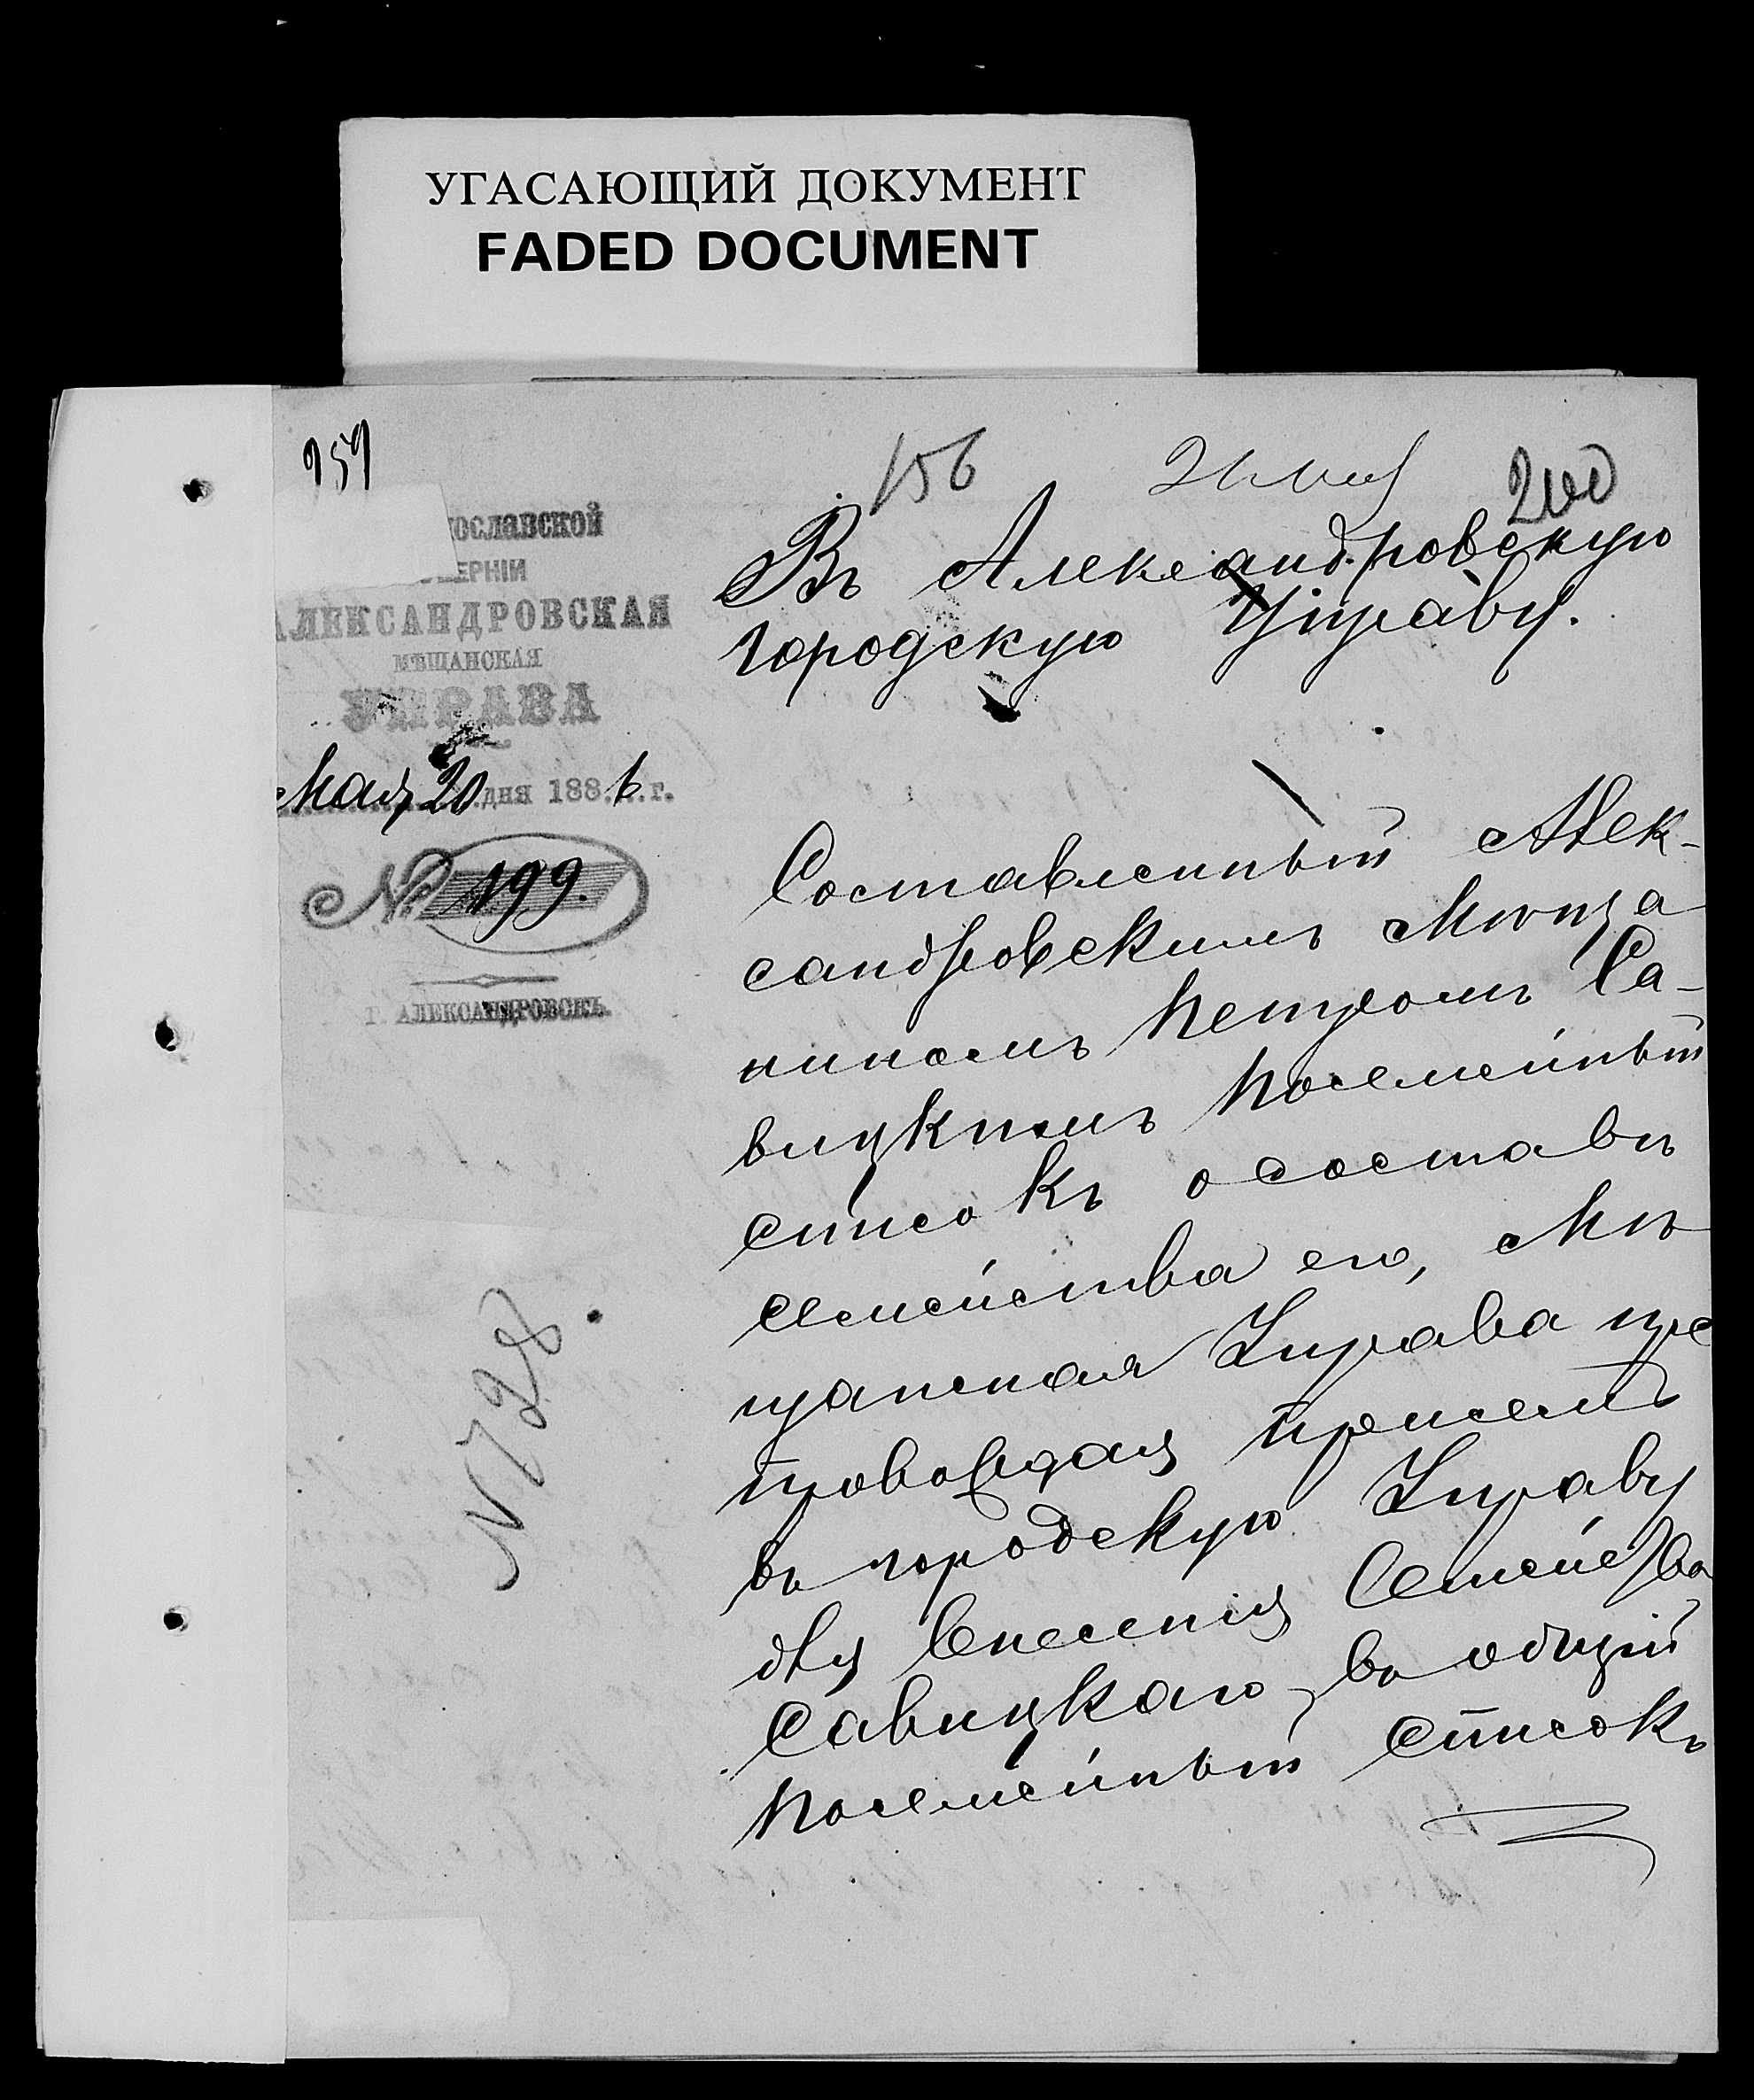 УГАСАЮЩИЙ ДОКУМЕНТ
FADED DOCUMENT
959
156
200
ославской
ЕРНІИ
АЛЕКСАНДРОВСКАЯ
МѢЩАНСКАЯ
УПРАВА
Мая 20 дня 1886 г.
№ 199.
Г. АЛЕКСАНДРОВСКЪ.
N 728
Въ Александровскую
городскую Управу.
Составленный Алек-
сандровскимъ Мѣща
ниномъ Петромъ Са-
вицкимъ посемейный
списокъ о составѣ
семейства его, Мѣ
щанская Управа пре
провождая при семъ
въ городскую Управу
для внесенія Семейства
Савицкаго въ общій
посемейный списокъ